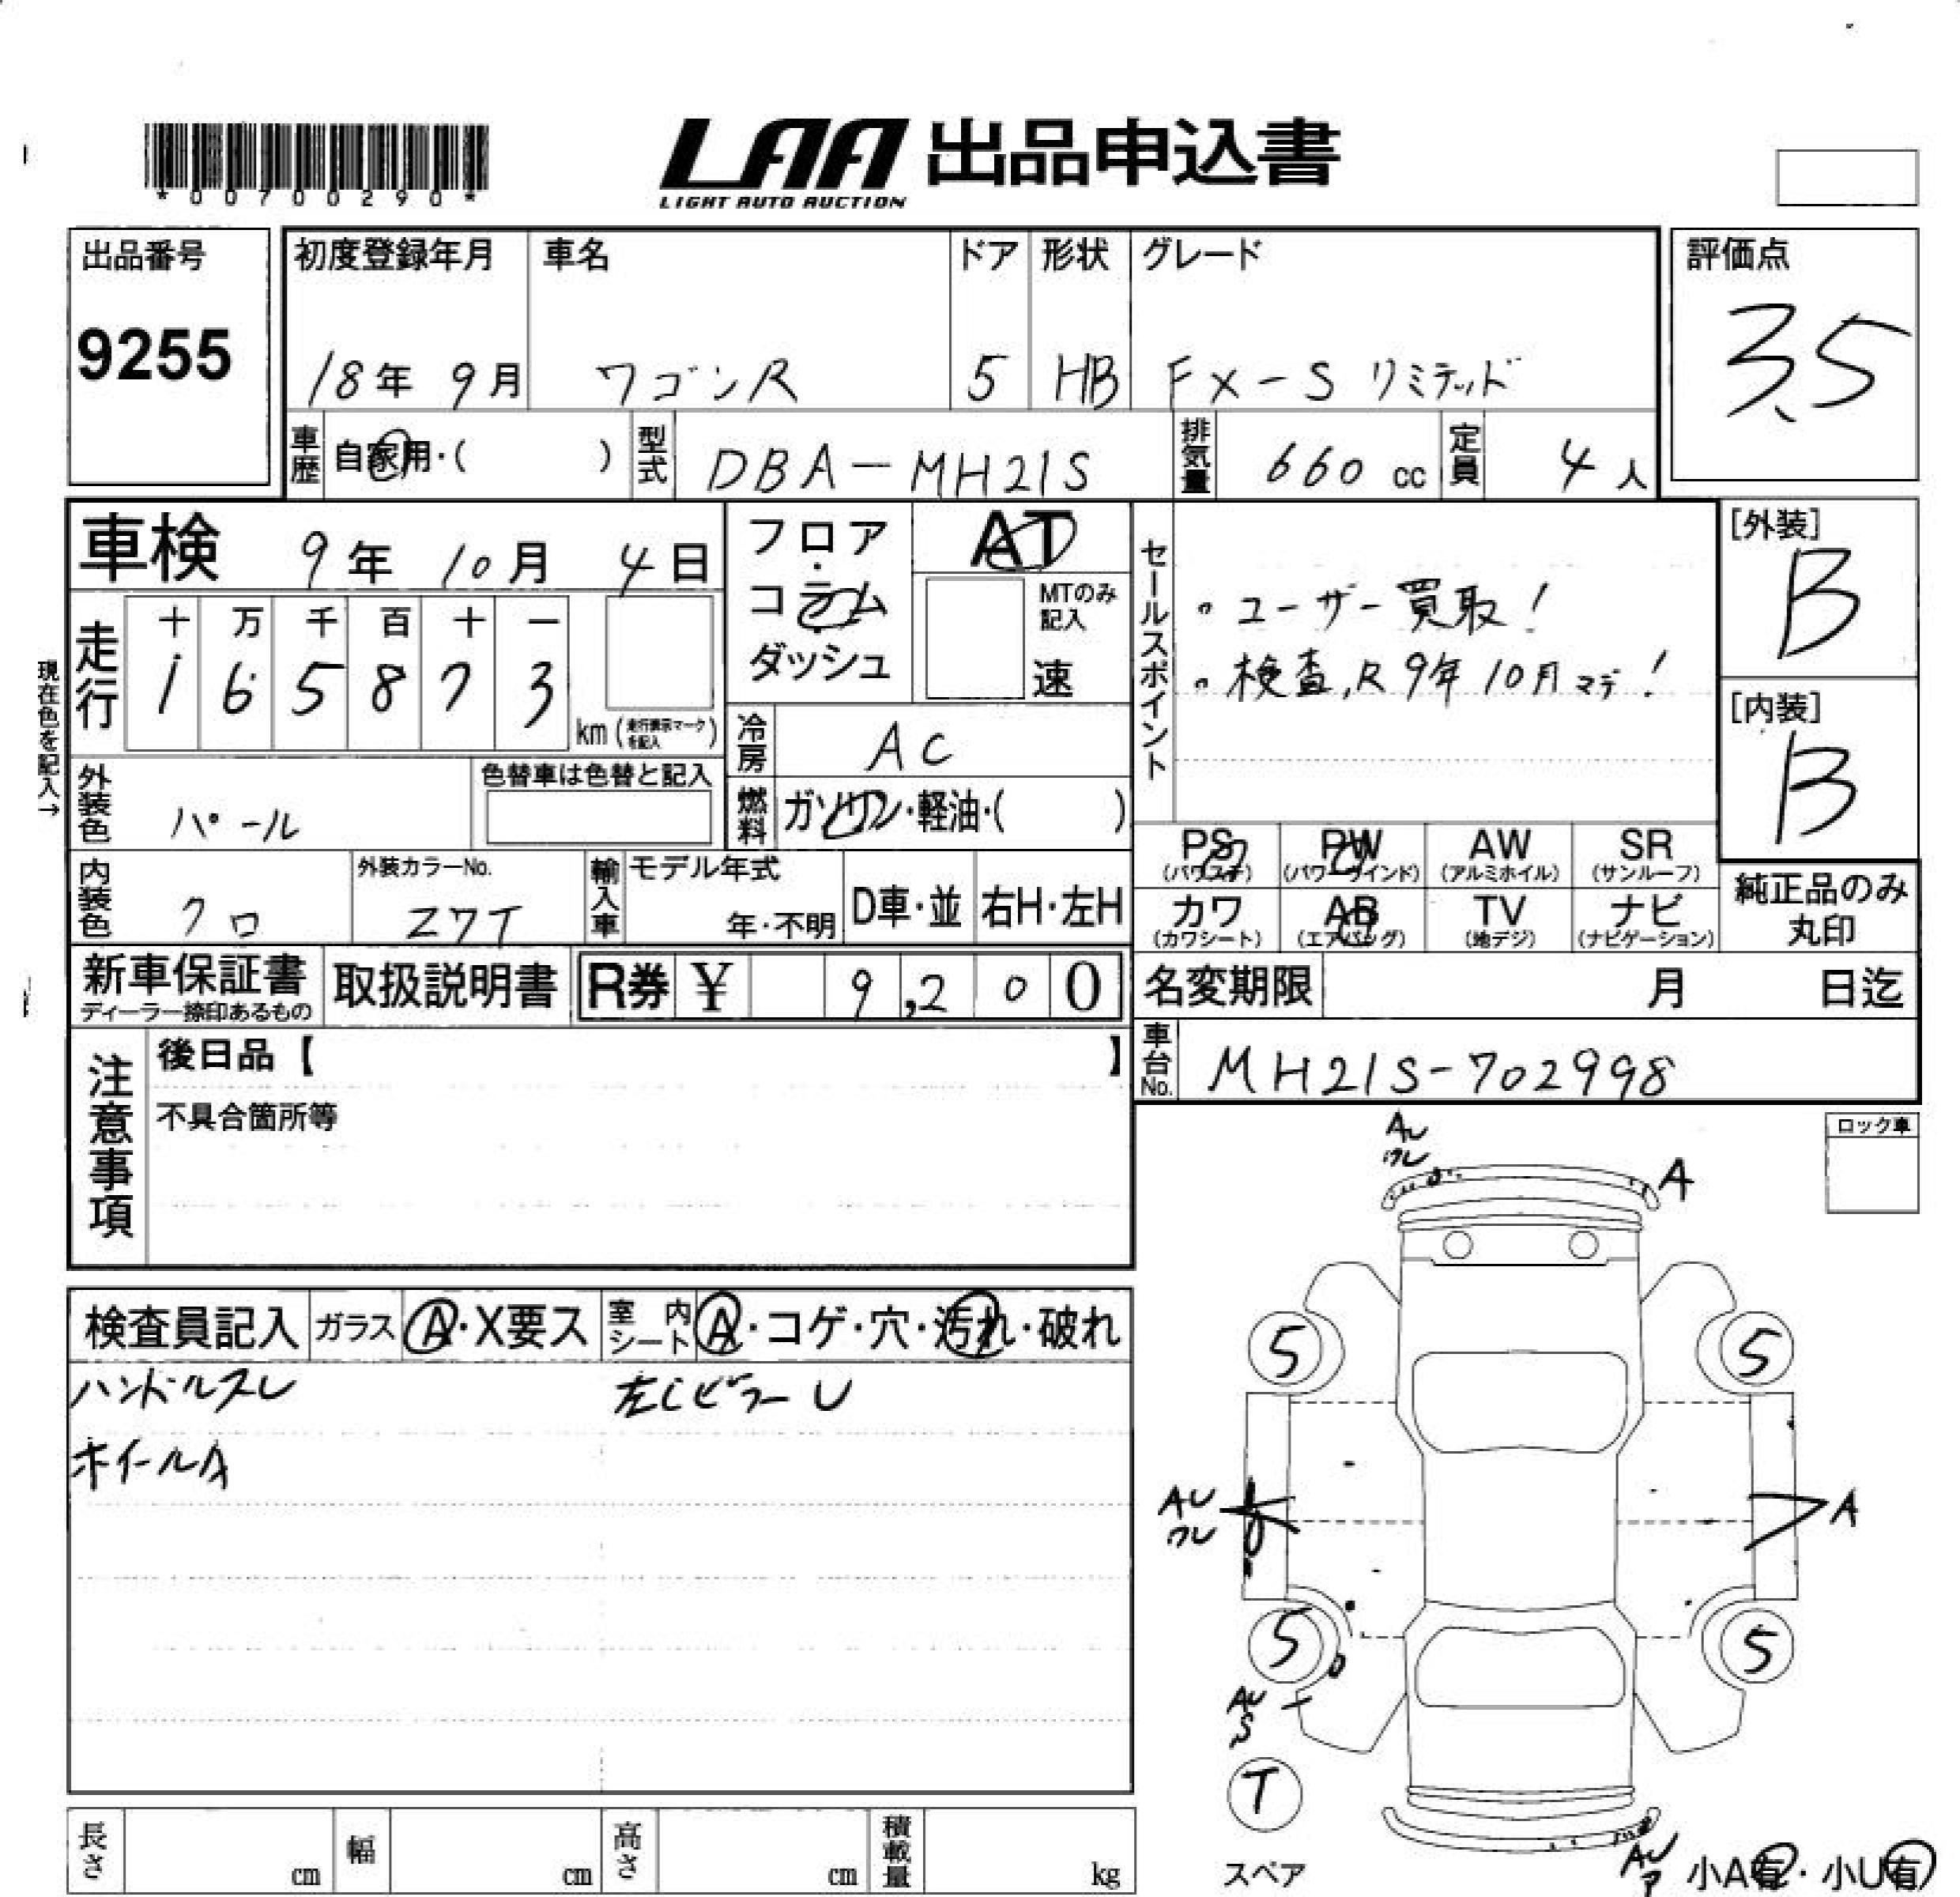 *00700290*
LAA 出品申込書
LIGHT AUTO AUCTION
出品番号
9255
初度登録年月
18年 9月
車名
ワゴンR
ドア
5
形状
HB
グレード
FX-S リミテッド
評価点
3.5
車歴
自家用・( )
型式
DBA-MH21S
排気量
660 cc
定員
4人
車検 9年 10月 4日
フロア・コラム・ダッシュ
AT
MTのみ記入
速
セールスポイント
。ユーザー買取!
。検査,R9年10月マデ!
[外装]
B
[内装]
B
現在色を記入→
走行
十 万 千 百 十 一
1 6 5 8 7 3
km (走行表示マークを記入)
冷房
AC
外装色
パール
色替車は色替と記入
燃料
ガソリン・軽油・( )
PS (パワステ)
PW (パワーウインド)
AW (アルミホイル)
SR (サンルーフ)
カワ (カワシート)
AB (エアバッグ)
TV (地デジ)
ナビ (ナビゲーション)
純正品のみ丸印
内装色
クロ
外装カラーNo.
Z7T
輸入車
モデル年式
年・不明
D車・並
右H・左H
新車保証書
ディーラー捺印あるもの
取扱説明書
R券 ¥ 9,200
名変期限 月 日迄
車台No.
MH21S-702998
注意事項
後日品【 】
不具合箇所等
ロック車
検査員記入
ガラス
A・X要ス
室内シート
A・コゲ・穴・汚れ・破れ
ハンドルスレ
左Cピラー U
ホイールA
AU
ワレ
A
5
5
AU
ワレ
A
5
5
AU
S
T
スペア
AU
ア
小A有・小U有
長さ cm
幅 cm
高さ cm
積載量 kg